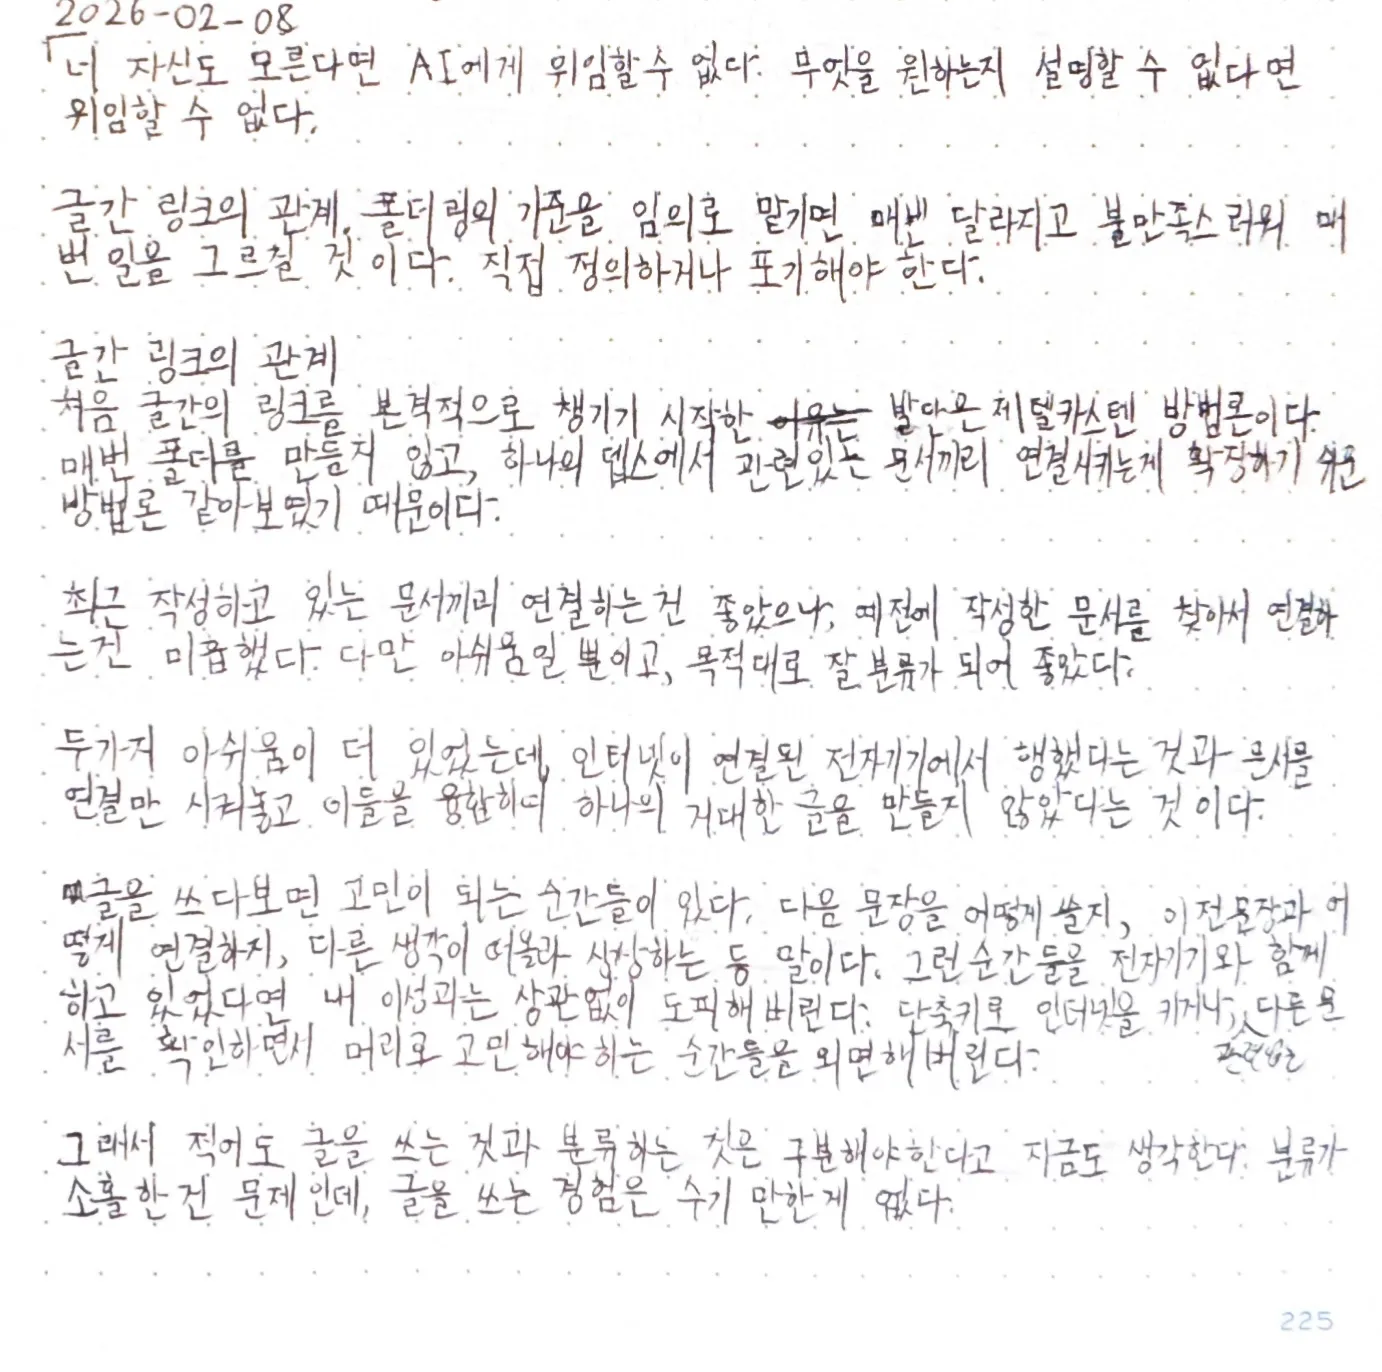 2026-02-08
너 자신도 모른다면 AI에게 위임할 수 없다. 무엇을 원하는지 설명할 수 없다면
위임할 수 없다.
글간 링크의 관계, 폴더링의 기준을 임의로 맡기면 매번 달라지고 불만족스러워 매
번 일을 그르칠 것이다. 직접 정의하거나 포기해야 한다.
글간 링크의 관계
처음 글간의 링크를 본격적으로 챙기기 시작한 이유는 발단은 제텔카스텐 방법론이다.
매번 폴더를 만들지 않고, 하나의 뎁스에서 관련있는 문서끼리 연결시키는게 확장하기 쉬운
방법론 같아보였기 때문이다.
최근 작성하고 있는 문서끼리 연결하는건 좋았으나, 예전에 작성한 문서를 찾아서 연결하
는건 미흡했다. 다만 아쉬움일 뿐이고, 목적대로 잘 분류가 되어 좋았다.
두가지 아쉬움이 더 있었는데, 인터넷이 연결된 전자기기에서 행했다는 것과 문서를
연결만 시켜놓고 이들을 융합하여 하나의 거대한 글을 만들지 않았다는 것이다.
글을 쓰다보면 고민이 되는 순간들이 있다. 다음 문장을 어떻게 쓸지, 이전문장과 어
떻게 연결하지, 다른 생각이 떠올라 상상하는 등 말이다. 그런 순간들을 전자기기와 함께
하고 있었다면 내 이성과는 상관없이 도피해버린다. 단축키로 인터넷을 키거나, 다른 문
관련없는
서를 확인하면서 머리로 고민해야하는 순간들을 외면해버린다.
그래서 적어도 글을 쓰는 것과 분류하는 것은 구분해야한다고 지금도 생각한다. 분류가
소홀한건 문제인데, 글을 쓰는 경험은 수기 만한게 없다.
225